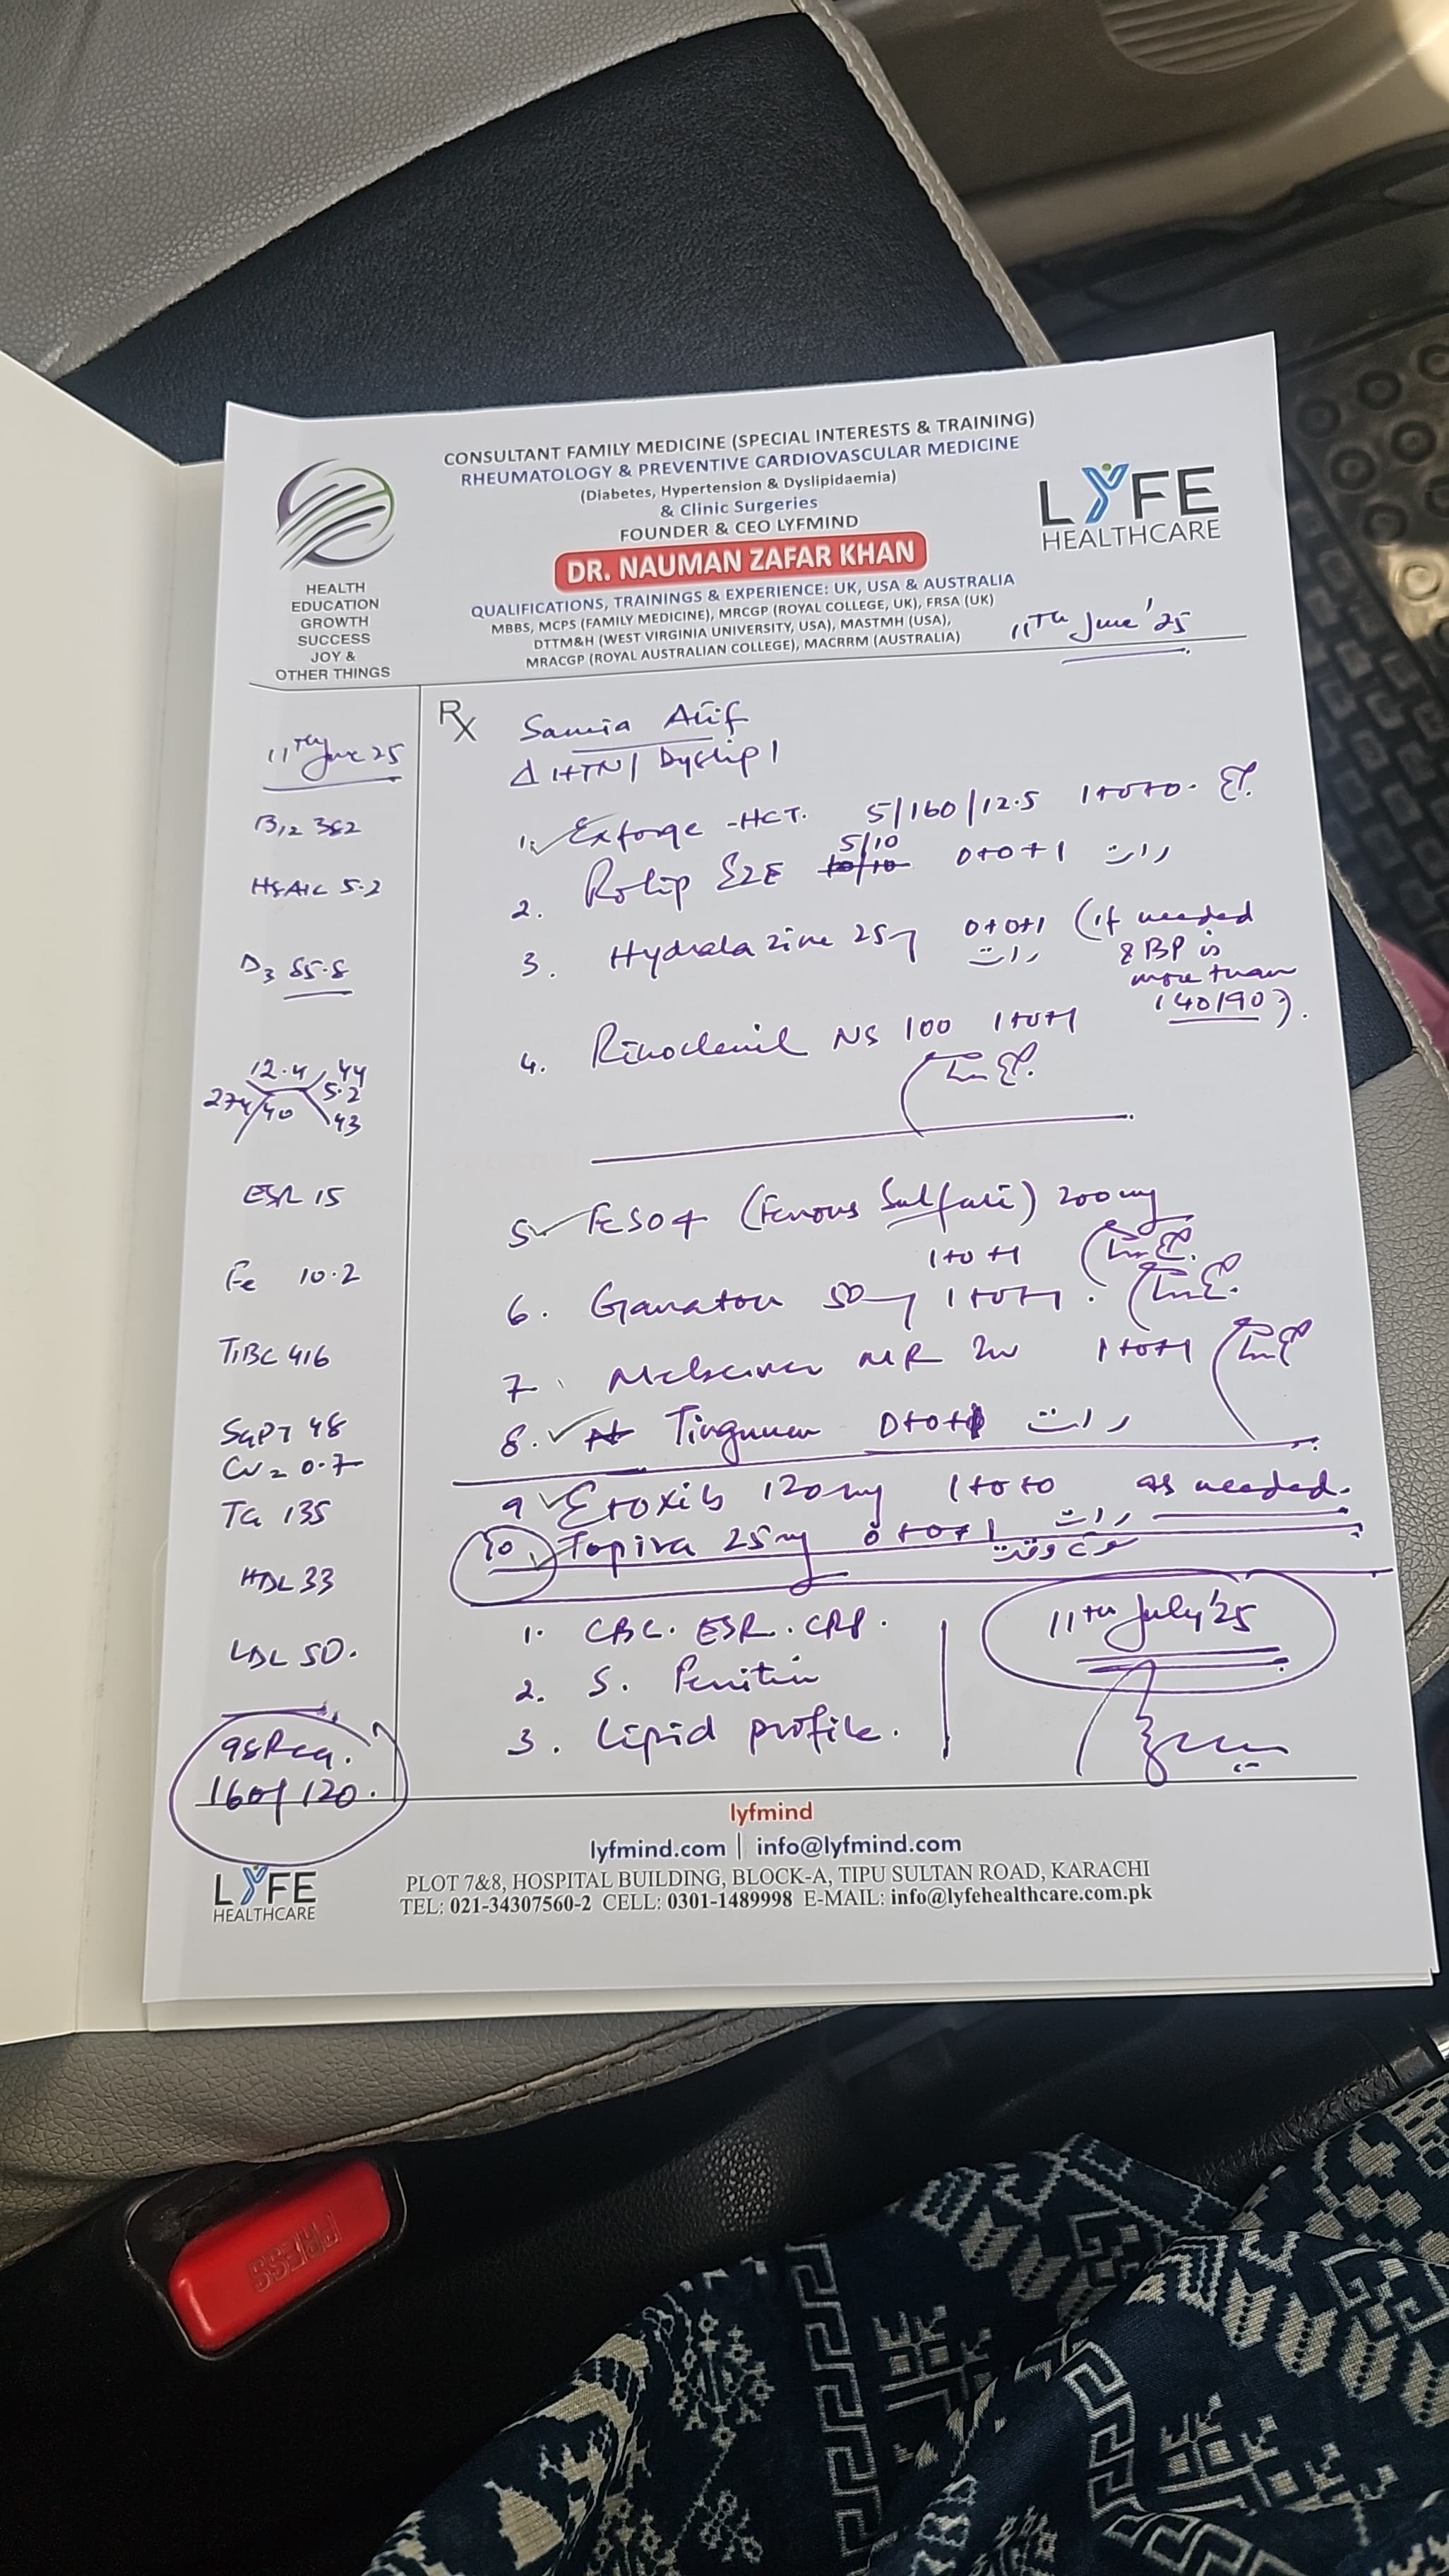 CONSULTANT FAMILY MEDICINE (SPECIAL INTERESTS & TRAINING)
RHEUMATOLOGY & PREVENTIVE CARDIOVASCULAR MEDICINE
(Diabetes, Hypertension & Dyslipidaemia)
& Clinic Surgeries
FOUNDER & CEO LYFMIND
DR. NAUMAN ZAFAR KHAN
QUALIFICATIONS, TRAININGS & EXPERIENCE: UK, USA & AUSTRALIA
MBBS, MCPS (FAMILY MEDICINE), MRCGP (ROYAL COLLEGE, UK), FRSA (UK)
DTTM&H (WEST VIRGINIA UNIVERSITY, USA), MASTMH (USA),
MRACGP (ROYAL AUSTRALIAN COLLEGE), MACRRM (AUSTRALIA)
HEALTH
EDUCATION
GROWTH
SUCCESS
JOY &
OTHER THINGS
LYFE
HEALTHCARE
11TH June '25
11TH June 25
B12 362
HbA1C 5.2
D3 55.8
12.4 44
274 40 5.2
43
ESR 15
Fe 10.2
TIBC 416
SGPT 48
Cr = 0.7
TG 135
HDL 33
LDL 50.
98 Reg.
160/120.
Rx Samia Atif
Δ HTN / Dyslip /
1. Exforge -HCT. 5/160/12.5 1+0+0. صبح
2. Rolip EZE 5/10 0+0+1 رات
3. Hydralazine 25mg 0+0+1 (if needed
رات & BP is
more than
140/90).
4. Rinoclenil NS 100 1+0+1
5. FeSO4 (Ferrous Sulfate) 200mg
1+0+1
6. Ganaton 50mg 1+0+1.
7. MR 200 1+0+1
8. 0+0+1 رات
9 Etoxib 120mg 1+0+0 as needed.
10. Topiva 25mg 0+0+1 رات
سوتے وقت
1. CBC. ESR. CRP.
2. S. Ferritin
3. Lipid profile.
11th July '25
lyfmind
lyfmind.com | info@lyfmind.com
LYFE
HEALTHCARE
PLOT 7&8, HOSPITAL BUILDING, BLOCK-A, TIPU SULTAN ROAD, KARACHI
TEL: 021-34307560-2 CELL: 0301-1489998 E-MAIL: info@lyfehealthcare.com.pk
PRESS